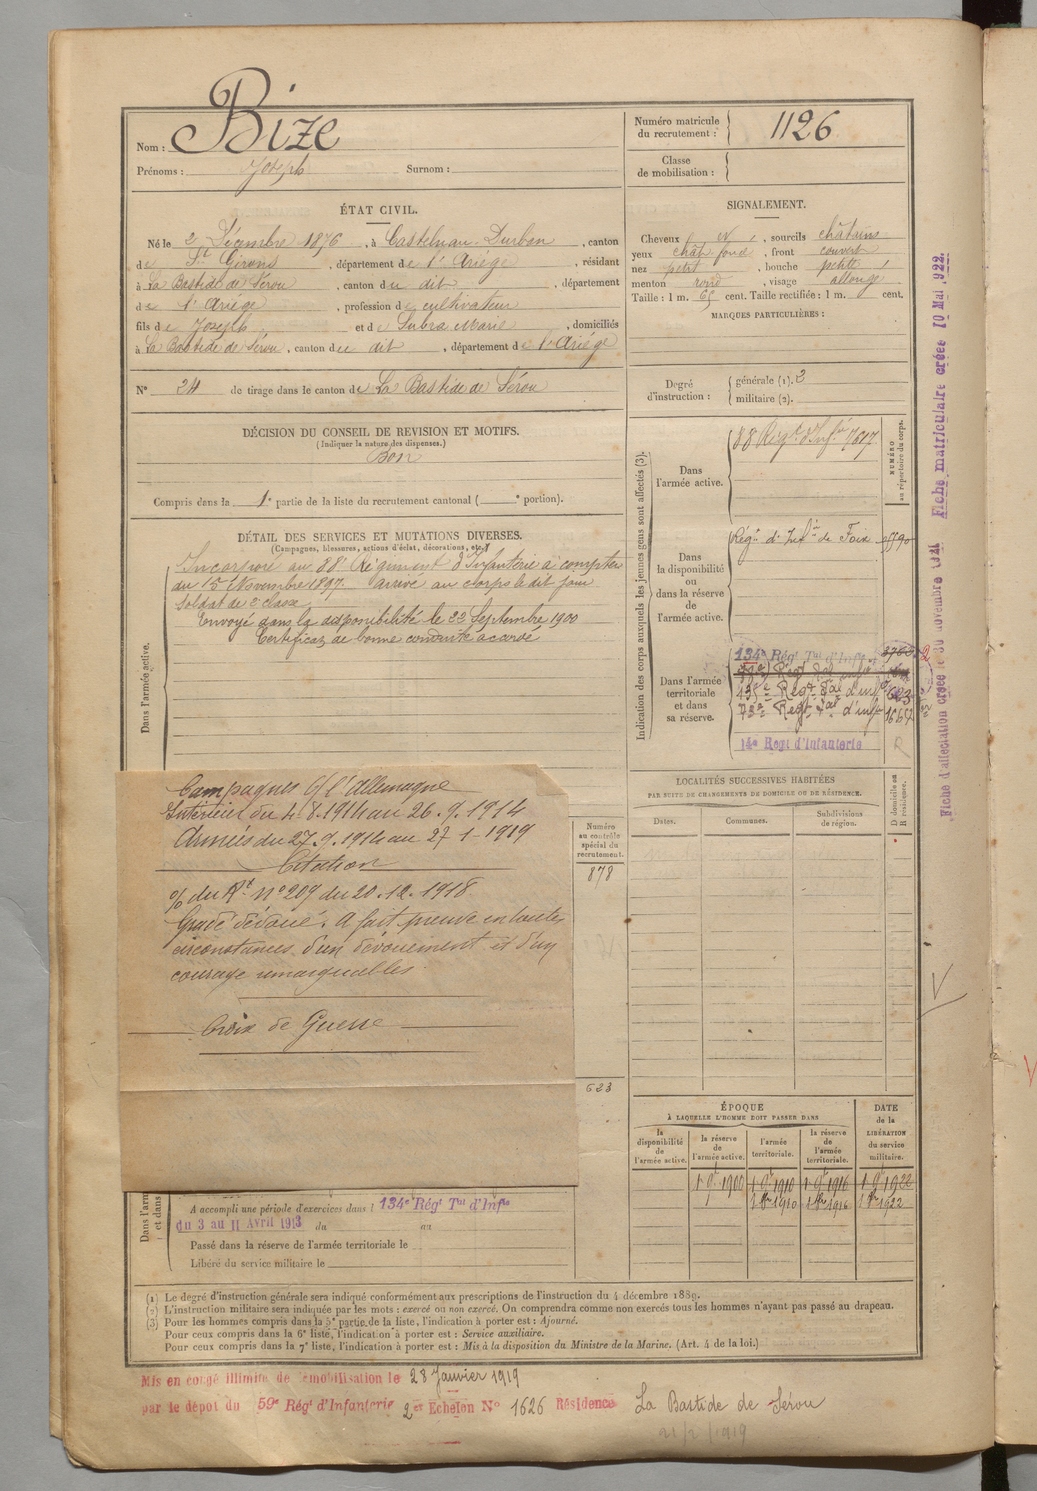 Nom : Bize
Prénoms : Joseph Surnom :
Numéro matricule du recrutement : 1126
Classe de mobilisation :
ÉTAT CIVIL.
Né le 2 Décembre 1876, à Castelnau-Durban, canton
de St Girons, département de l'Ariège, résidant
à La Bastide de Sérou, canton du dit, département
de l'Ariège, profession de cultivateur
fils de Joseph et de Subra Marie, domiciliés
à La Bastide de Sérou, canton du dit, département de l'Ariège
N° 24 de tirage dans le canton de La Bastide de Sérou
SIGNALEMENT.
Cheveux , sourcils châtains
yeux chât foncé, front couvert
nez petit, bouche petite
menton rond, visage allongé
Taille : 1 m. 65 cent. Taille rectifiée : 1 m. cent.
MARQUES PARTICULIÈRES :
Degré d'instruction : générale (1). 3
militaire (2).
DÉCISION DU CONSEIL DE REVISION ET MOTIFS.
(Indiquer la nature des dispenses.)
Bon
Compris dans la 1e partie de la liste du recrutement cantonal ( e portion).
DÉTAIL DES SERVICES ET MUTATIONS DIVERSES.
(Campagnes, blessures, actions d'éclat, décorations, etc.)
Dans l'armée active.
Incorporé au 88e Régiment d'Infanterie à compter
du 15 Novembre 1897 arrivé au corps le dit jour
Soldat de 2e classe
Envoyé dans la disponibilité le 22 Septembre 1900
Certificat de bonne conduite accordé
Campagnes C/ l'Allemagne
Intérieur du 4.8.1914 au 26.9.1914
Armées du 27.9.1914 au 27-1-1919
Citation
% du Rt N° 209 du 20.12.1918
Gradé dévoué. A fait preuve en toutes
circonstances d'un dévouement et d'un
courage remarquables.
Croix de Guerre
Numéro au contrôle spécial du recrutement.
878
623
Indication des corps auxquels les jeunes gens sont affectés (3).
NUMÉRO au répertoire du corps.
Dans l'armée active.
88 Régt d'Infie 7617
Dans la disponibilité ou dans la réserve de l'armée active.
Régt d'Infie de Foix
Dans l'armée territoriale et dans sa réserve.
134e Régt Tal d'Infie
135e Régt Tal d'inf
Régt Tal d'inf
14e Regt d'Infanterie
R
LOCALITÉS SUCCESSIVES HABITÉES
PAR SUITE DE CHANGEMENTS DE DOMICILE OU DE RÉSIDENCE.
Dates. Communes. Subdivisions de région. D domicile ou R résidence.
ÉPOQUE
À LAQUELLE L'HOMME DOIT PASSER DANS
la disponibilité de l'armée active. la réserve de l'armée active. l'armée territoriale. la réserve de l'armée territoriale.
DATE de la LIBÉRATION du service militaire.
1 9bre 1900 1 9bre 1910 1 9bre 1916 1 9bre 1922
1 8bre 1910 1 8bre 1916 1 8bre 1922
A accompli une période d'exercices dans l 134e Régt Tal d'Infie
du 3 au 11 Avril 1913 du au
Passé dans la réserve de l'armée territoriale le
Libéré du service militaire le
(1) Le degré d'instruction générale sera indiqué conformément aux prescriptions de l'instruction du 4 décembre 1889.
(2) L'instruction militaire sera indiquée par les mots : exercé ou non exercé. On comprendra comme non exercés tous les hommes n'ayant pas passé au drapeau.
(3) Pour les hommes compris dans la 5e partie de la liste, l'indication à porter est : Ajourné.
Pour ceux compris dans la 6e liste, l'indication à porter est : Service auxiliaire.
Pour ceux compris dans la 7e liste, l'indication à porter est : Mis à la disposition du Ministre de la Marine. (Art. 4 de la loi.)
Mis en congé illimité de démobilisation le 28 Janvier 1919
par le dépôt du 59e Régt d'Infanterie 2e Echelon N° 1626 Résidence La Bastide de Sérou
21/2/1919
Fiche d'affectation créée le 30 novembre 1921 Fiche matriculaire créée 10 Mai 1922.